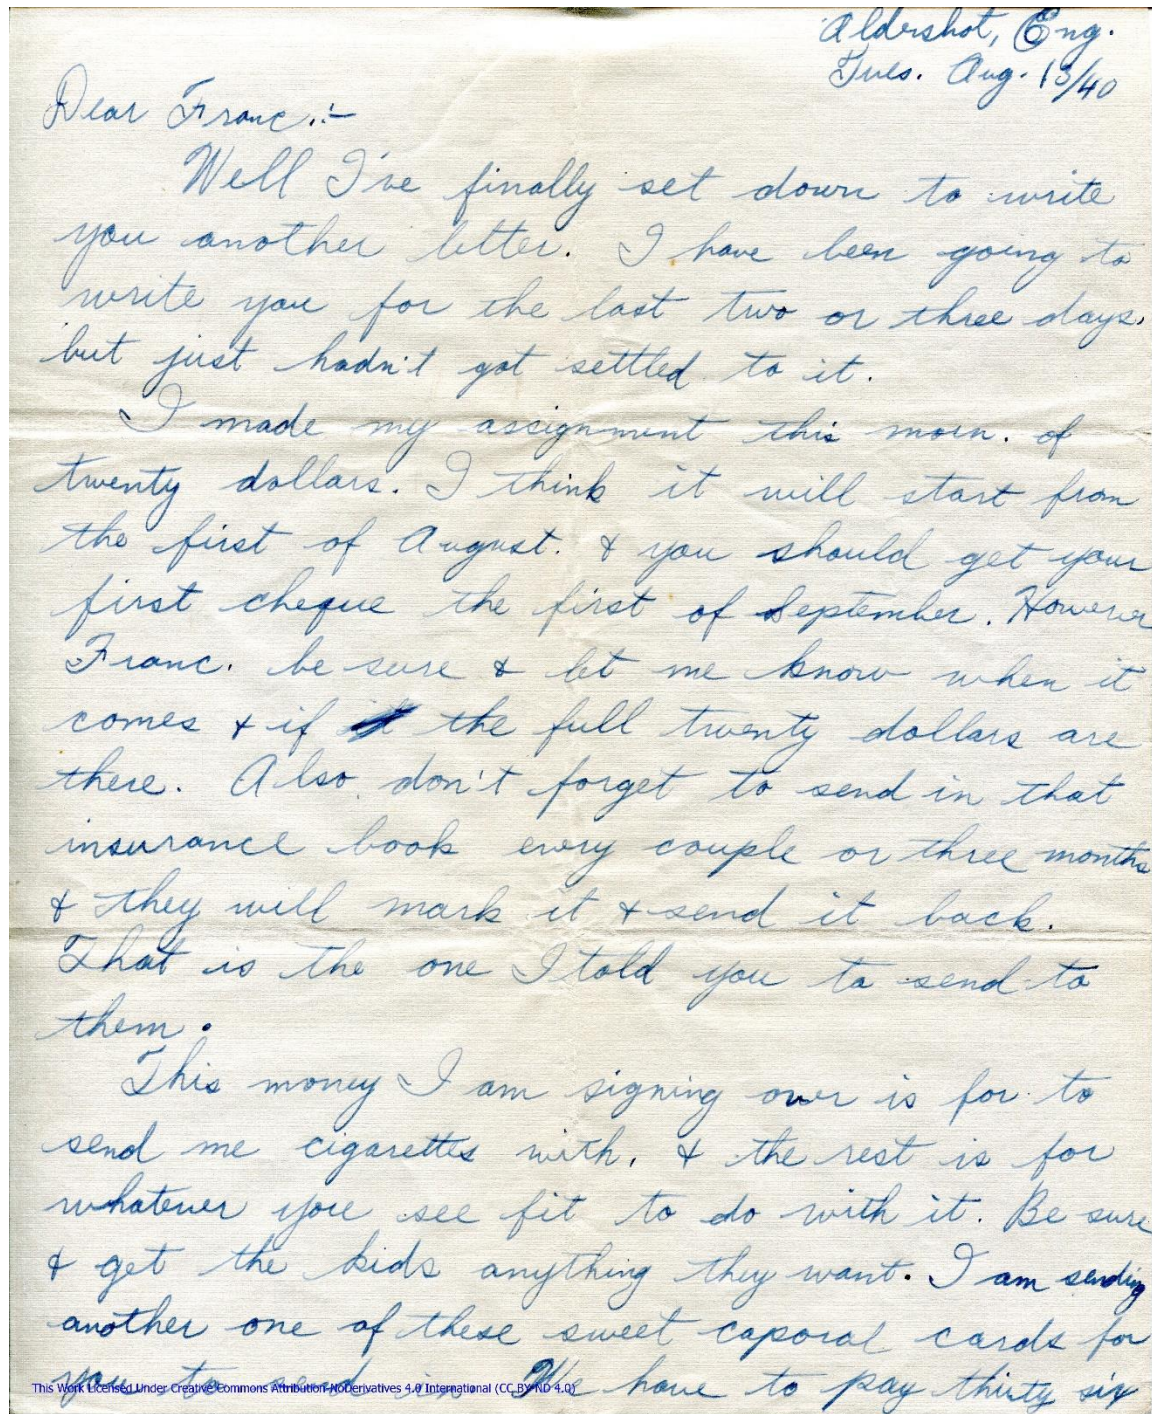 Aldershot, Eng.
Tues. Aug. 13/40
Dear Franc.:-
Well I've finally set down to write
you another letter. I have been going to
write you for the last two or three days.
but just hadn't got settled to it.
I made my assignment this morn. of
twenty dollars. I think it will start from
the first of August. & you should get your
first cheque the first of September. However
Franc. be sure & let me know when it
comes & if the full twenty dollars are
there. Also don't forget to send in that
insurance book every couple or three months
& they will mark it & send it back.
That is the one I told you to send to
them.
This money I am signing over is for to
send me cigarettes with, & the rest is for
whatever you see fit to do with it. Be sure
& get the kids anything they want. I am sending
another one of these sweet caporal cards for
you to send in. We have to pay thirty six
This Work Licensed Under Creative Commons Attribution-NoDerivatives 4.0 International (CC BY-ND 4.0)